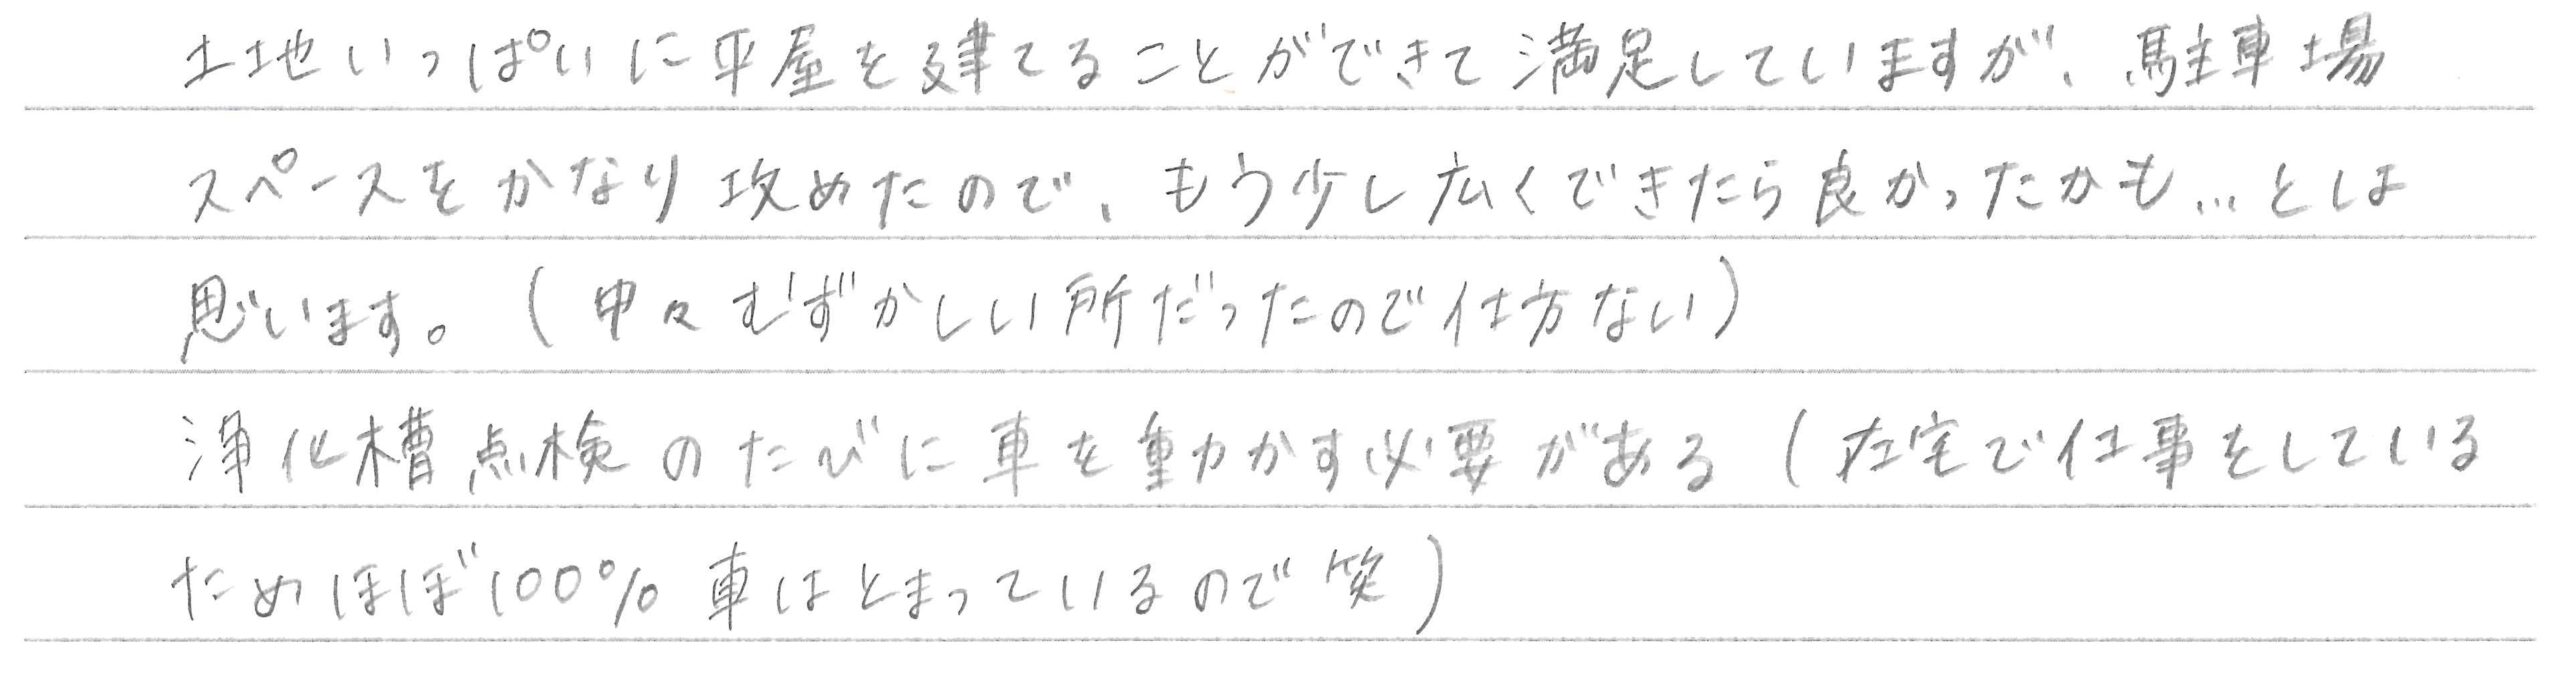 土地いっぱいに平屋を建てることができて満足していますが、駐車場
スペースをかなり攻めたので、もう少し広くできたら良かったかも…とは
思います。(中々むずかしい所だったので仕方ない)
浄化槽点検のたびに車を動かす必要がある(在宅で仕事をしている
ためほぼ100%車はとまっているので笑)